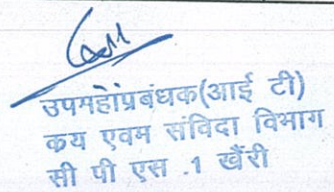 उपमहाेप्रबंधक(आई टी)
कय एवम संविदा विभाग
सी पी एस .1 खैंरी